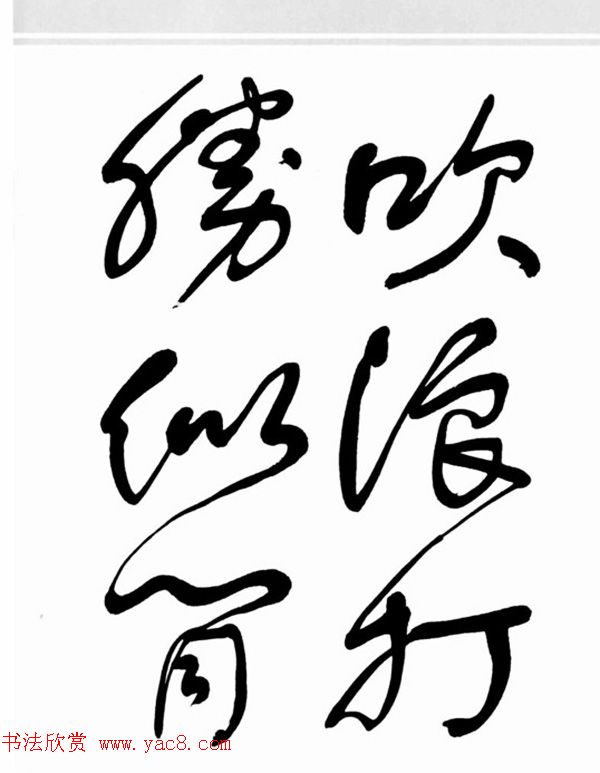 吹浪打
勝似閒
书法欣赏 www.yac8.com